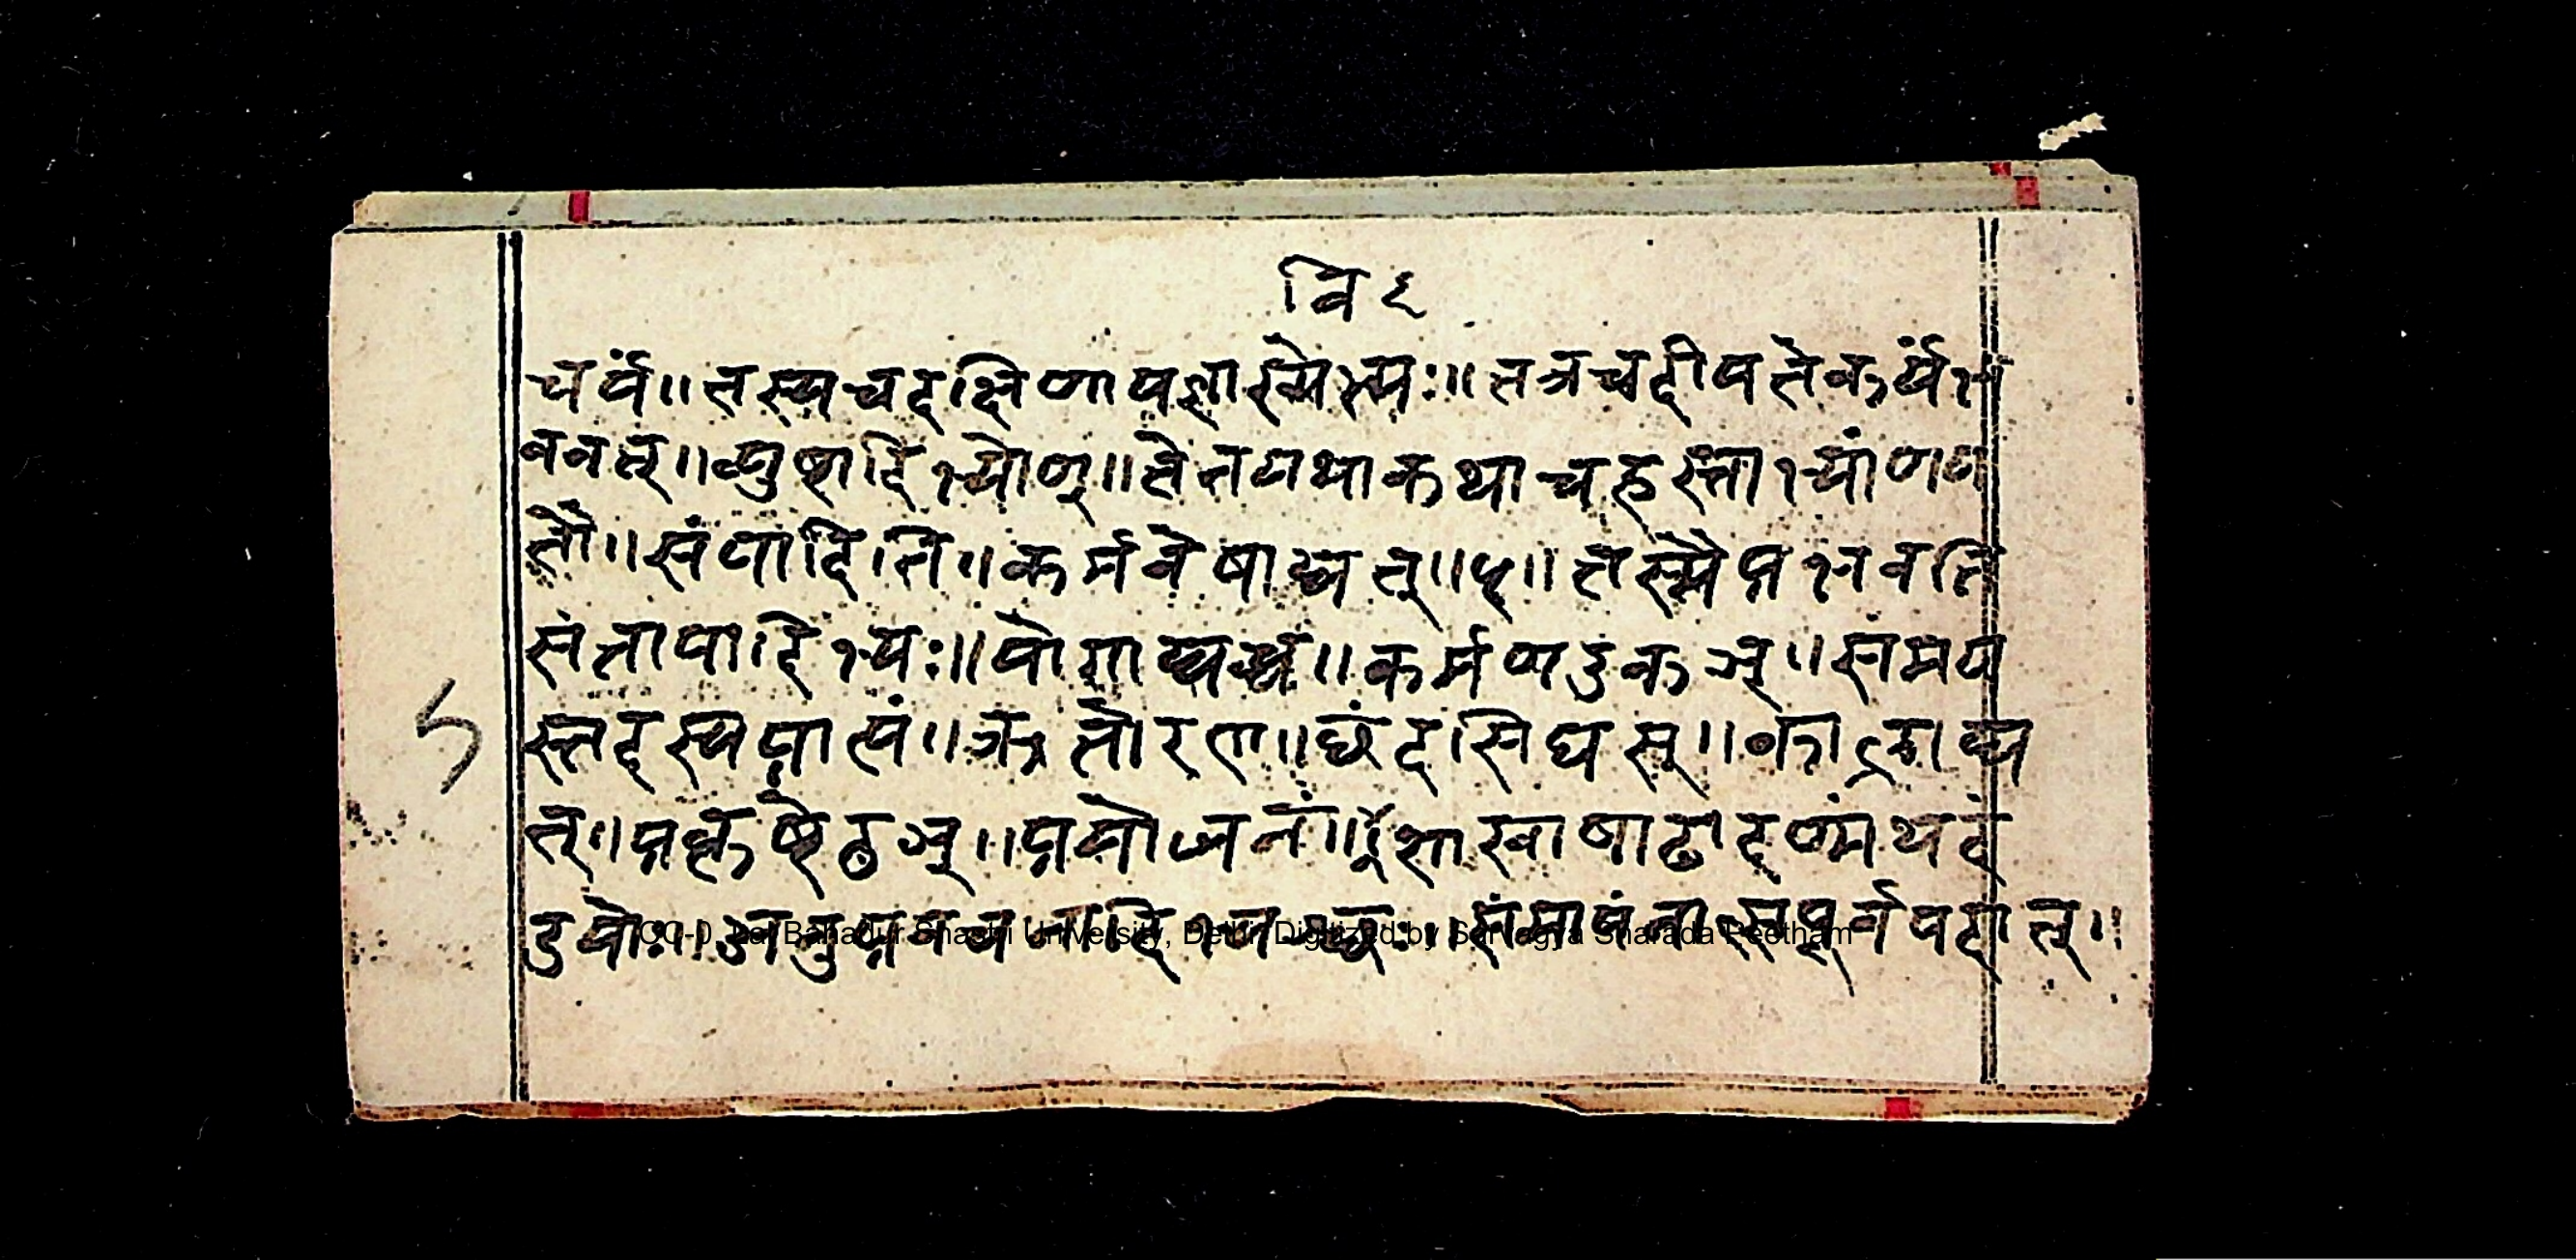 वि ६
चर्यं॥ तस्य च दक्षिणा यज्ञाख्येभ्यः॥ तत्र च दीयते कार्यं भ
ववत्॥ व्युष्टादिभ्योण्॥ तेन यथाकथाच हस्ताभ्यां णय
तौ॥ संपादिनि॥ कर्मवेषाद्यत्॥ ५॥ तस्मै प्रभवति
संतापादिभ्यः॥ योगाद्यच्च॥ कर्मण उकञ्॥ समय
स्तदस्य प्राप्तं॥ ऋतोरण्॥ छंदसि घस्॥ कालाद्य
त्॥ प्रकृष्टे ठञ्॥ प्रयोजनं॥ विशाखाषाढादण्मंथदं
डयोः॥ अनुप्रवचनादिभ्यश्छः॥ समापनात्सपूर्वपदात्॥
CC-0. Lal Bahadur Shastri University, Delhi. Digitized by Sarvagya Sharada Peetham